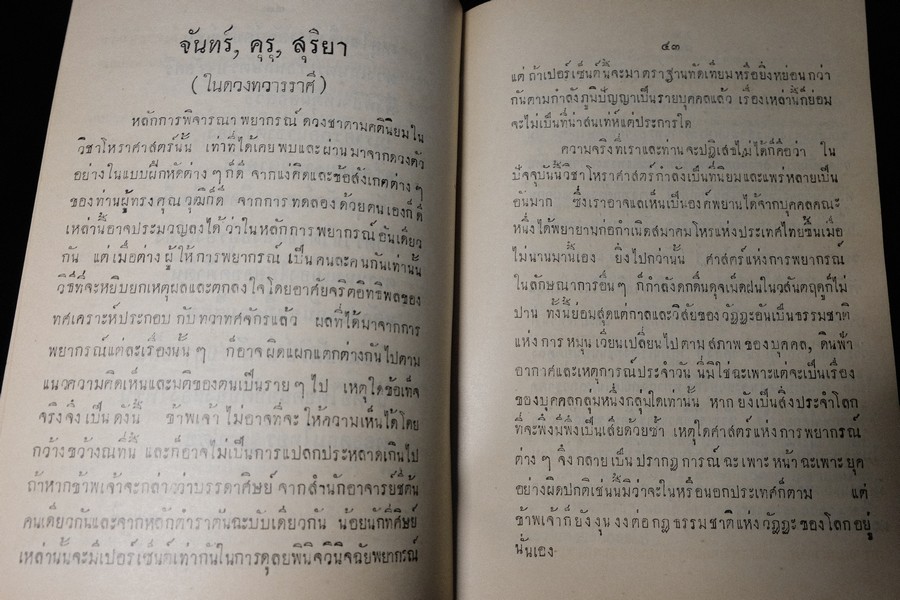 จันทร์, คุรุ, สุริยา
(ในดวงทวารราศี)
หลักการพิจารณาพยากรณ์ ดวงชาตามคตินิยมใน
วิชาโหราศาสตร์นั้น เท่าที่ได้เคยพบและผ่านมาจากดวงตัว
อย่างในแบบฝึกหัดต่าง ๆ ก็ดี จากแง่คิดและข้อสังเกตต่าง ๆ
ของท่านผู้ทรงคุณวุฒิก็ดี จากการทดลองด้วยตนเองก็ดี
เหล่านี้อาจประมวญลงได้ว่าในหลักการพยากรณ์อันเดียว
กัน แต่เมื่อต่างผู้ให้การพยากรณ์เป็นคนละคนกันเท่านั้น
วิธีที่จะหยิบยกเหตุผลและตกลงใจโดยอาศัยจริตอิทธิพลของ
ทศเคราะห์ประกอบกับทวาทศจักรแล้ว ผลที่ได้มาจากการ
พยากรณ์แต่ละเรื่องนั้น ๆ ก็อาจผิดแผกแตกต่างกันไปตาม
แนวความคิดเห็นและมติของตนเป็นราย ๆ ไป เหตุใดข้อเท็จ
จริงจึงเป็นดังนี้ ข้าพเจ้าไม่อาจที่จะให้ความเห็นได้โดย
กว้างขวางณที่นี้ และก็อาจไม่เป็นการแปลกประหลาดเกินไป
ถ้าหากข้าพเจ้าจะกล่าวว่าบรรดาศิษย์จากสำนักอาจารย์ชั้นต้น
คนเดียวกันและจากหลักตำราต้นฉะบับเดียวกัน น้อยนักที่ศิษย์
เหล่านั้นจะมีเปอร์เซ็นต์เท่ากันในการดุลยพินิจวินิจฉัยพยากรณ์
๔๓
แต่ถ้าเปอร์เซ็นต์นี้จะมาตราฐานทัดเทียมหรือยิ่งหย่อนกว่า
กันตามกำลังภูมิปัญญาเป็นรายบุคคลแล้ว เรื่องเหล่านี้ก็ย่อม
จะไม่เป็นที่น่าสนเท่ห์แต่ประการใด
ความจริงที่เราและท่านจะปฏิเสธไม่ได้ก็คือว่า ใน
ปัจจุบันนี้วิชาโหราศาสตร์กำลังเป็นที่นิยมและแพรหลายเป็น
อันมาก ซึ่งเราอาจแลเห็นเป็นองค์พยานได้จากบุคคลคณะ
หนึ่งได้พยายามก่อกำเนิดสมาคมโหรแห่งประเทศไทยขึ้นเมื่อ
ไม่นานมานี้เอง ยิ่งไปกว่านั้น ศาสตร์แห่งการพยากรณ์
ในลักษณาการอื่นๆ ก็กำลังดกดื่นดุจเม็ดฝนในวสันตฤดูก็ไม่
ปาน ทั้งนี้ย่อมสุดแต่กาลและวิสัยของวัฏฏะอันเป็นธรรมชาติ
แห่งการหมุนเวียนเปลี่ยนไปตามสภาพของบุคคล, ดินฟ้า
อากาศและเหตุการณ์ประจำวัน นี่มิใช่ฉะเพาะแต่จะเป็นเรื่อง
ของบุคคลกลุ่มหนึ่งกลุ่มใดเท่านั้น หากยังเป็นสิ่งประจำโลก
ที่จะพึงมีพึงเป็นเสียด้วยซ้ำ เหตุใดศาสตร์แห่งการพยากรณ์
ต่าง ๆ จึงกลายเป็นปรากฏการณ์ฉะเพาะหน้าฉะเพาะยุค
อย่างผิดปกติเช่นนั้นมิว่าจะในหรือนอกประเทศก็ตาม แต่
ข้าพเจ้าก็ยังงุนงงต่อกฎธรรมชาติแห่งวัฏฏะของโลกอยู่
นั้นเอง